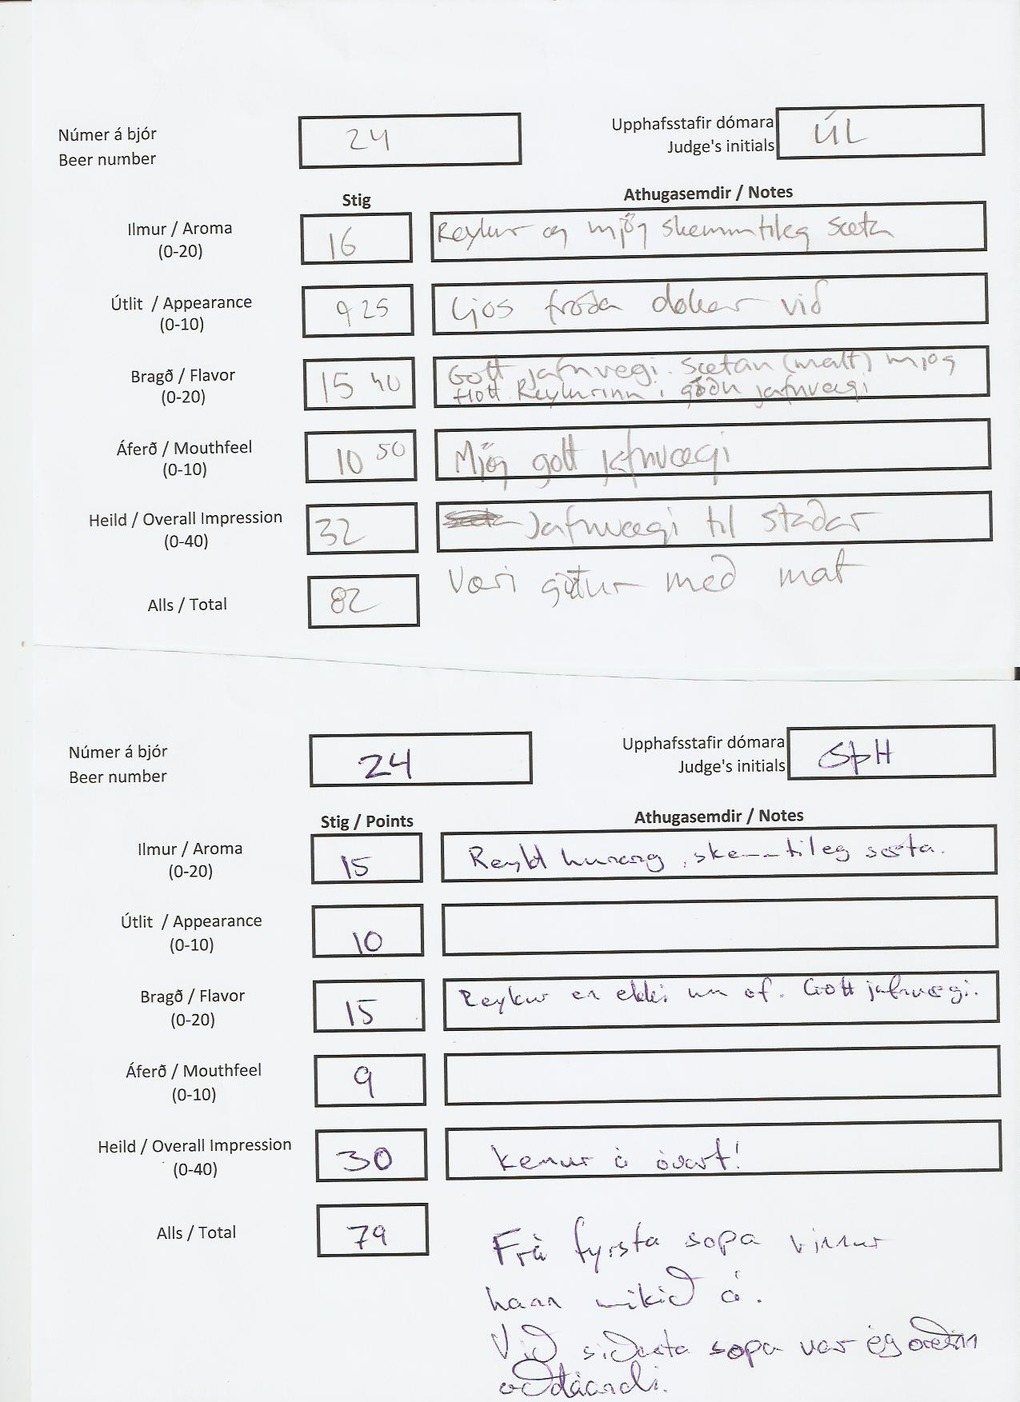 Númer á bjór
Beer number
24
Upphafsstafir dómara
Judge's initials
ÚL
Stig
Athugasemdir / Notes
Ilmur / Aroma
(0-20)
16
Reykur og mjög skemmtileg sæta
Útlit / Appearance
(0-10)
9 25
Ljos froða dokar við
Bragð / Flavor
(0-20)
15 40
Gott jafnvægi. Sætan (malt) mjog
flott Reykurinn i góðu jafnvægi
Áferð / Mouthfeel
(0-10)
10 50
Mjög gott jafnvægi
Heild / Overall Impression
(0-40)
32
Jafnvægi til staðar
Alls / Total
82
Væri gútur með mat
Númer á bjór
Beer number
24
Upphafsstafir dómara
Judge's initials
SÞH
Stig / Points
Athugasemdir / Notes
Ilmur / Aroma
(0-20)
15
Reykt hunang, skemmtileg sæta.
Útlit / Appearance
(0-10)
10
Bragð / Flavor
(0-20)
15
Reykur er ekki um of. Gott jafnvægi.
Áferð / Mouthfeel
(0-10)
9
Heild / Overall Impression
(0-40)
30
Kemur á óvart!
Alls / Total
79
Frá fyrsta sopa vinnur
hann mikið á.
Við síðasta sopa var ég orðinn
aðdáandi.